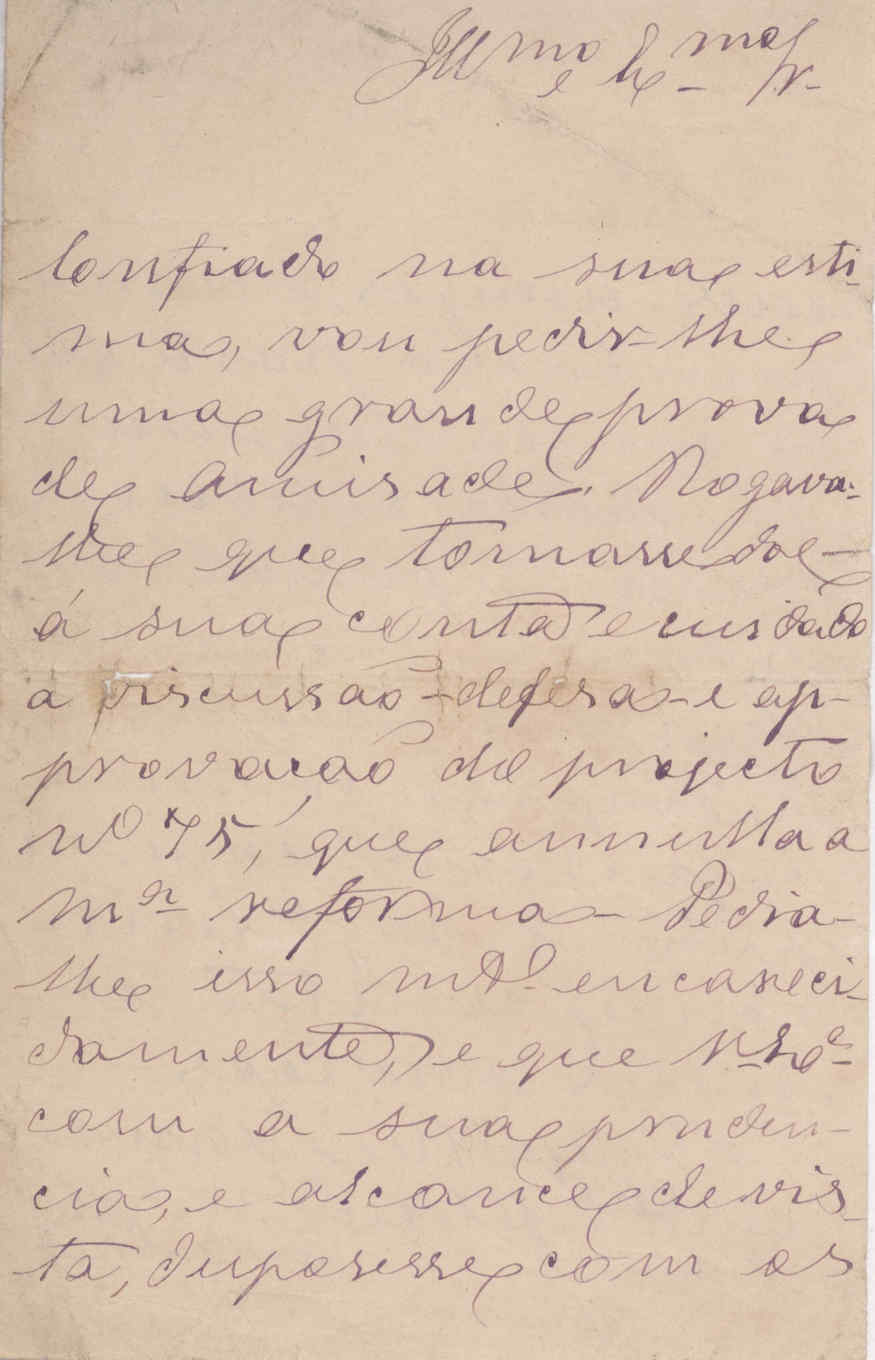 Illmo e Exmo Sr.
Confiado na sua esti-
ma, vou pedir-lhe
uma grande prova
de amisade. Rogava-
lhe que tomasse de
á sua conta e cuidado
a discussão - defesa - e ap-
provação do projecto
nº 75, que annulla a
mª reforma - Pedia-
lhe isso mtº encareci-
damente, e que V. Exª
com a sua pruden-
cia, e alcance de vis-
ta, disposesse com os